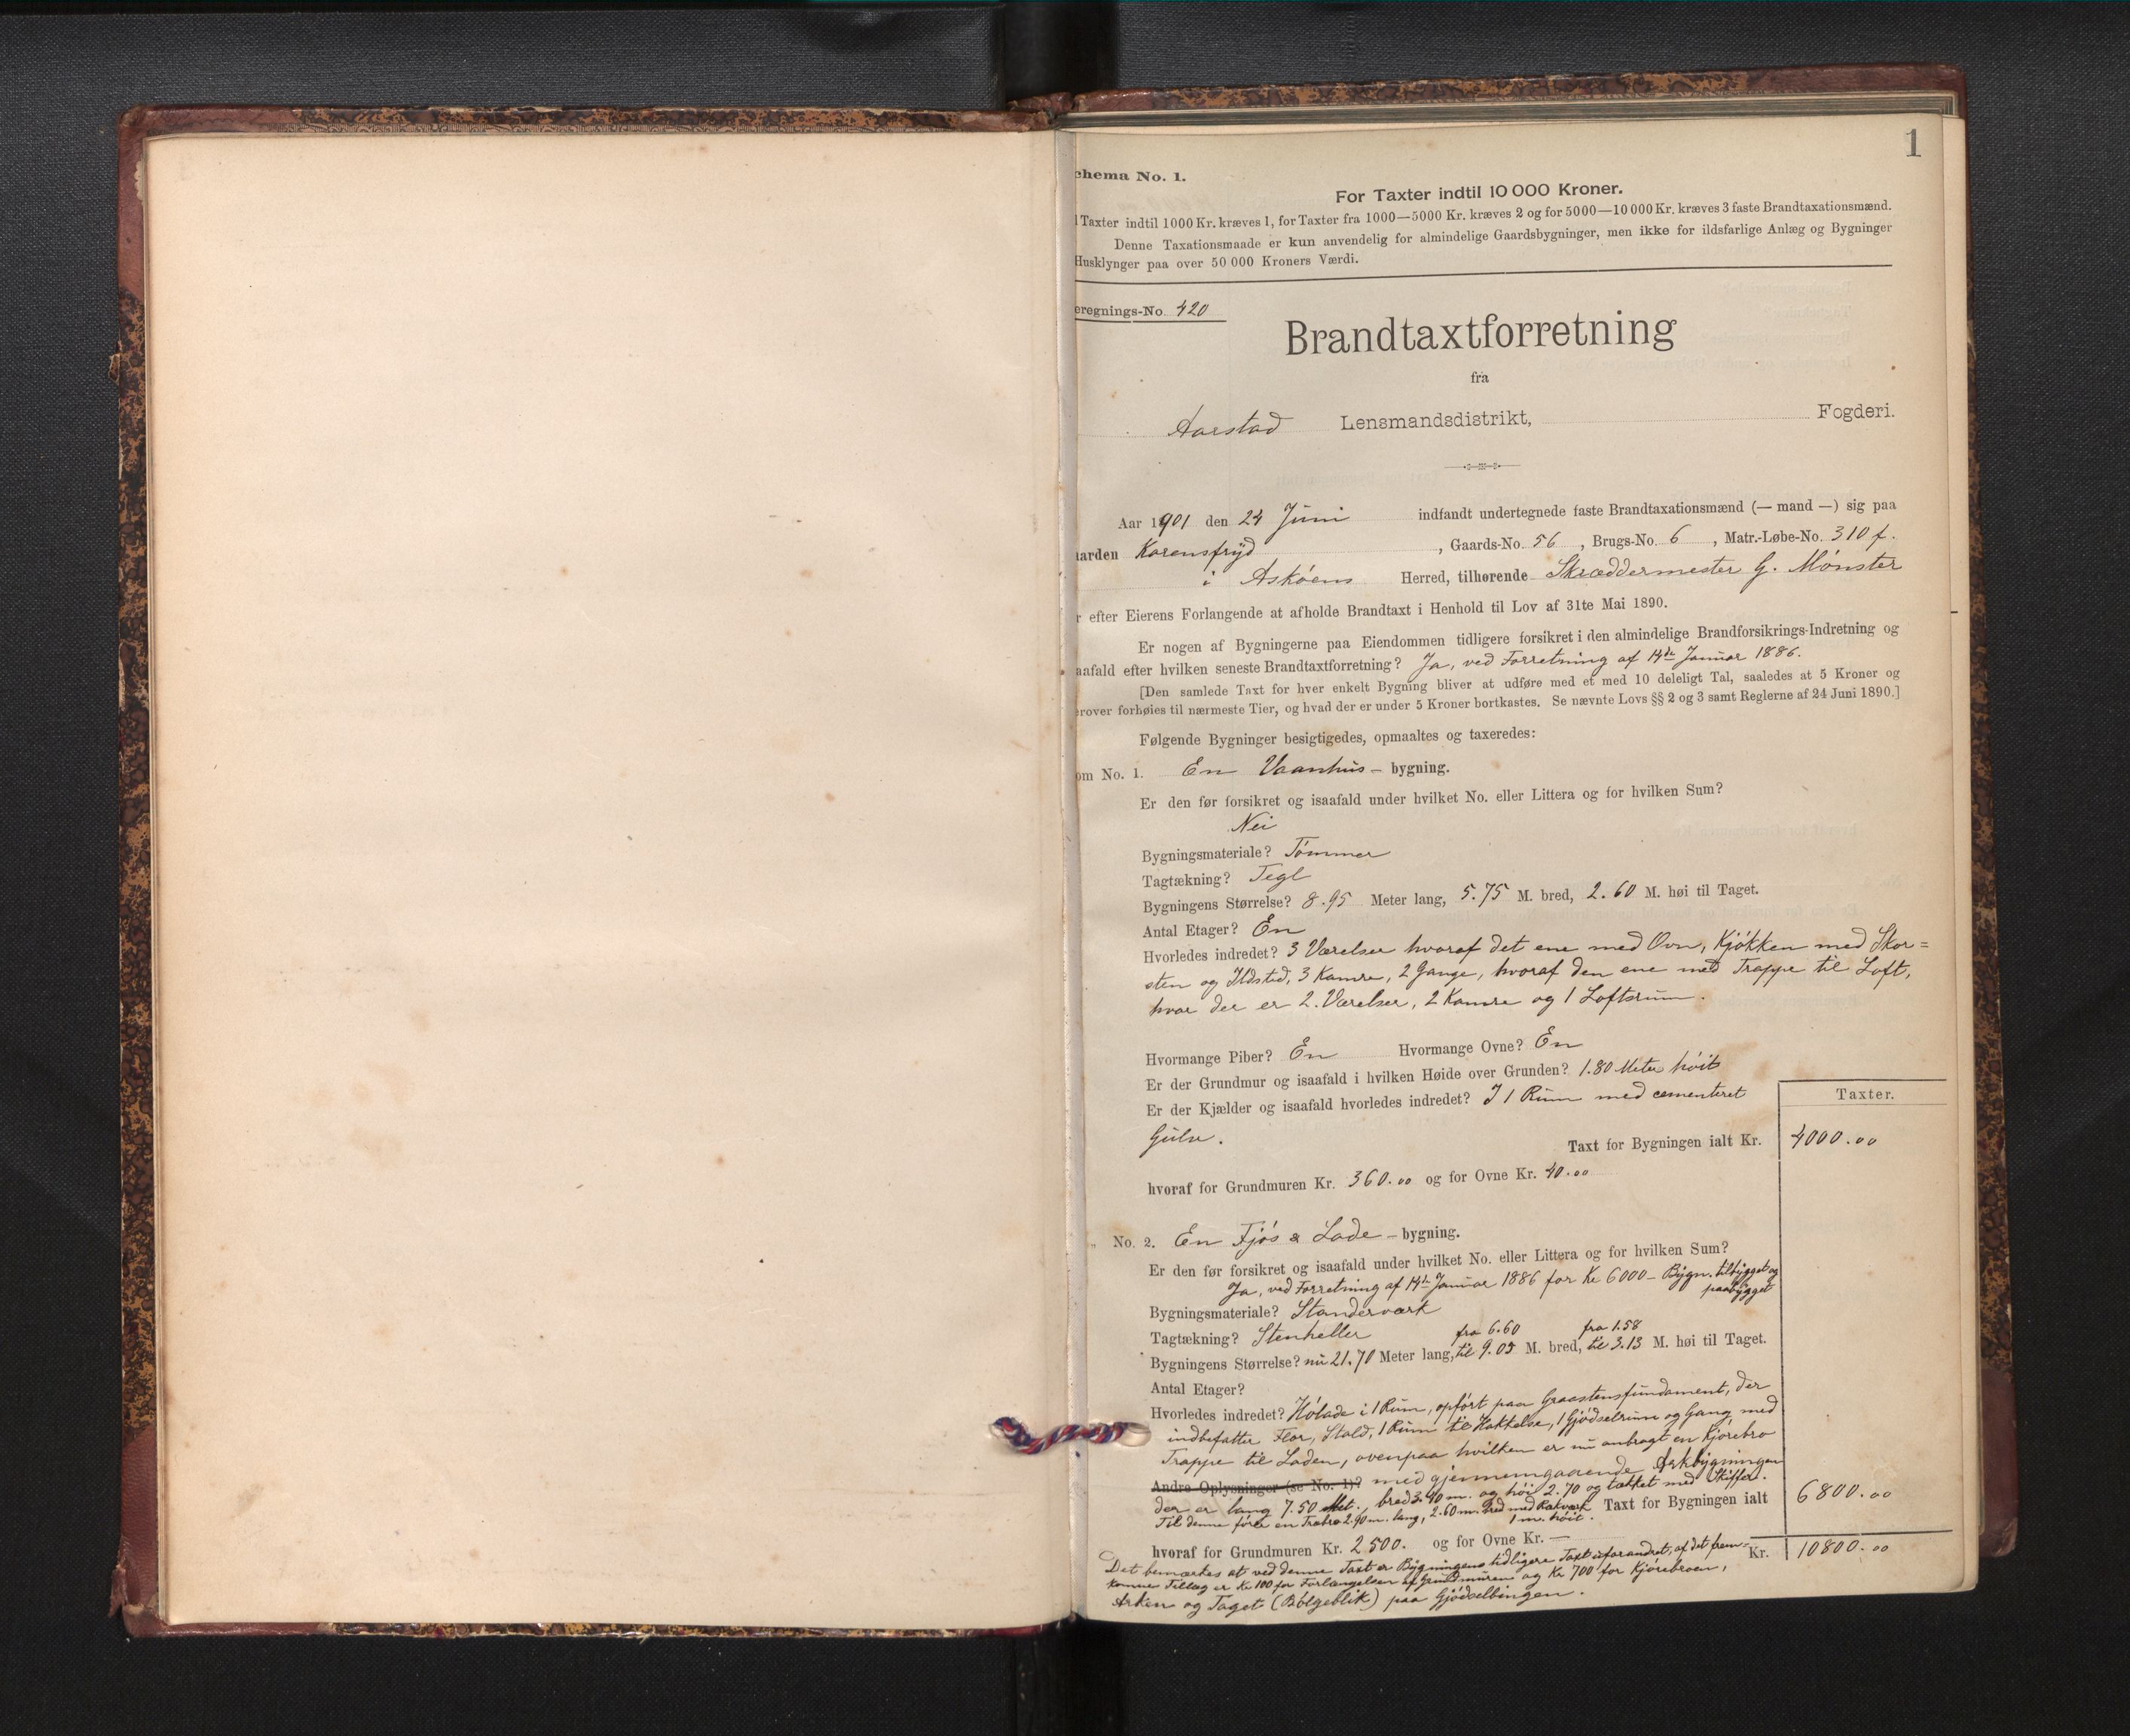 1
chema No. 1.
For Taxter indtil 10 000 Kroner.
Taxter indtil 1000 Kr. kræves 1, for Taxter fra 1000—5000 Kr. kræves 2 og for 5000—10 000 Kr. kræves 3 faste Brandtaxationsmænd.
Denne Taxationsmaade er kun anvendelig for almindelige Gaardsbygninger, men ikke for ildsfarlige Anlæg og Bygninger
Husklynger paa over 50 000 Kroners Værdi.
eregnings-No. 420
Brandtaxtforretning
fra
Aarstad Lensmandsdistrikt, Fogderi.
Aar 1901 den 24 Juni indfandt undertegnede faste Brandtaxationsmænd (— mand —) sig paa
aarden Karensfryd, Gaards-No. 56, Brugs-No. 6, Matr.-Løbe-No. 310 f.
i Askøens Herred, tilhørende Skræddermester G. Mönster
r efter Eierens Forlangende at afholde Brandtaxt i Henhold til Lov af 31te Mai 1890.
Er nogen af Bygningerne paa Eiendommen tidligere forsikret i den almindelige Brandforsikrings-Indretning og
aafald efter hvilken seneste Brandtaxtforretning? Ja, ved Forretning af 14de Januar 1886.
[Den samlede Taxt for hver enkelt Bygning bliver at udføre med et med 10 deleligt Tal, saaledes at 5 Kroner og
erover forhøies til nærmeste Tier, og hvad der er under 5 Kroner bortkastes. Se nævnte Lovs §§ 2 og 3 samt Reglerne af 24 Juni 1890.]
Følgende Bygninger besigtigedes, opmaaltes og taxeredes:
om No. 1. En Vaanhus - bygning.
Er den før forsikret og isaafald under hvilket No. eller Littera og for hvilken Sum?
Nei
Bygningsmateriale? Tömmer
Tagtækning? Tegl
Bygningens Størrelse? 8.95 Meter lang, 5.75 M. bred, 2.60 M. høi til Taget.
Antal Etager? En
Hvorledes indredet? 3 Værelser hvoraf det ene med Ovn, Kjökken med Skor=
sten og Ildsted, 3 Kamre, 2 Gange, hvoraf den ene med Trappe til Loft,
hvor der er 2. Værelser, 2 Kamre og 1 Loftsrum.
Hvormange Piber? En Hvormange Ovne? En
Er der Grundmur og isaafald i hvilken Høide over Grunden? 1.80 Meter höit
Er der Kjælder og isaafald hvorledes indredet? I 1 Rum med cementeret
Gulv.
Taxter.
Taxt for Bygningen ialt Kr. 4000.00
hvoraf for Grundmuren Kr. 360.00 og for Ovne Kr. 40.00
„ No. 2. En Fjös & Lade - bygning.
Er den før forsikret og isaafald under hvilket No. eller Littera og for hvilken Sum?
Ja, ved Forretning af 14de Januar 1886 for Kr 6000 - Bygn. tilbygget og
paabygget
Bygningsmateriale? Standerværk
Tagtækning? Stenheller fra 6.60 fra 1.58
Bygningens Størrelse? nu 21.70 Meter lang, til 9.05 M. bred, til 3.13 M. høi til Taget.
Antal Etager?
Hvorledes indredet? Hölade i 1 Rum, opfört paa Graastensfundament, der
indbefatter Flor, Stald, 1 Rum til Hakkelse, 1 Gjödselrum og Gang med
Trappe til Laden, ovenpaa hvilken er nu anbragt en Kjörebro
Andre Oplysninger (se No. 1)? med gjennemgaaende Arkbygningen
der er lang 7.50 Met., bred 3.40 m. og höi 2.70 og tækket med Skiffer.
Til denne förer en Træbro 2.90 m. lang, 2.60 m. bred med Rækværk
1 m. höit.
Taxt for Bygningen ialt 6800.00
hvoraf for Grundmuren Kr. 2500. og for Ovne Kr. —
Kr. 10800.00
Det bemærkes at ved denne Taxt er Bygningens tidligere Taxt uforandret, af det frem-
komne Tillæg er Kr 100 for Forlængelsen af Grundmurene og Kr 700 for Kjörebroen,
Arken og Taget (Bölgeblik) paa Gjödselbingen.